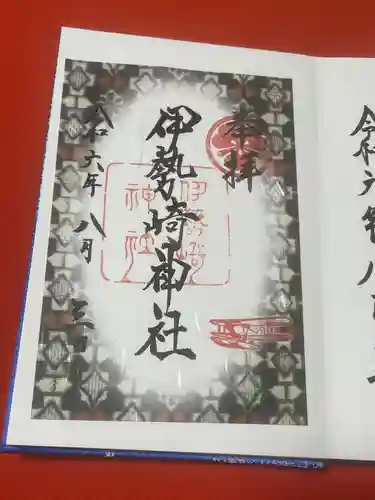 奉拝
伊勢崎神社
伊勢崎
神社
令和六年八月三日
令和六年八月